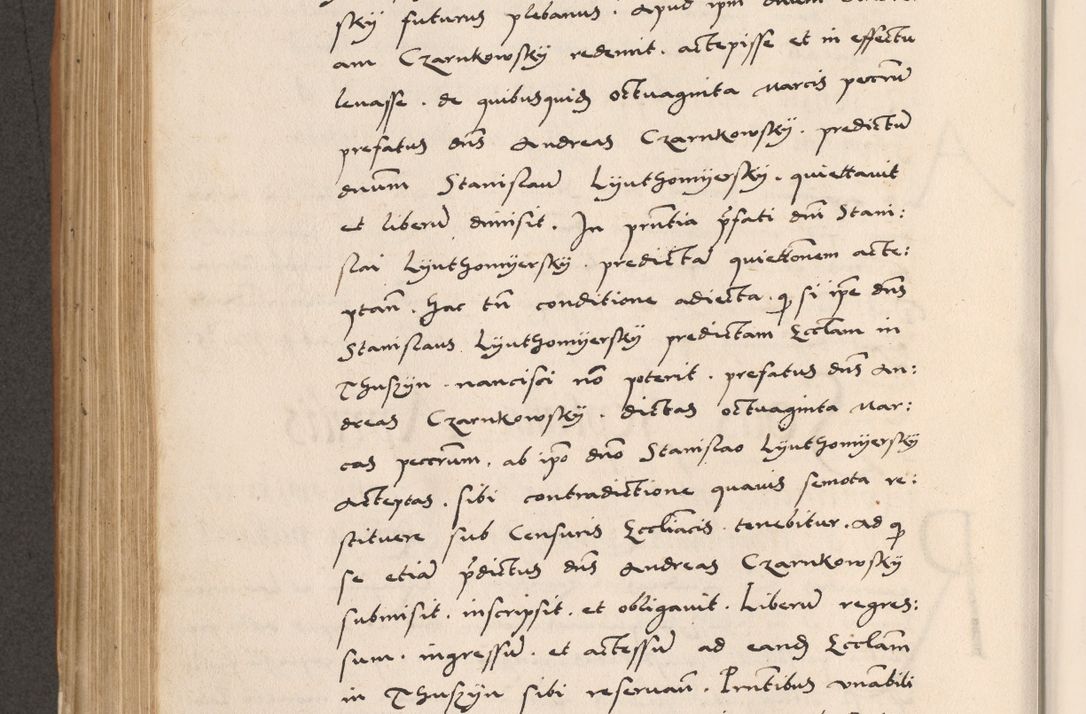 sky futurus plebanus . apud ipm
am Czarnkowsky redemit . accepisse et in effectu
levasse . de quibusquidē octuaginta marcis peccruū
prefatus dns Andreas Czarnkowsky . predictū
dnum Stanislaū Lyuthomyersky . quiettavit
et liberū dimisit . In prntia pfati dni Stani:
slai Lyuthomyersky . predictā quiettonem acce:
ptan̄ . hac tn̄ conditione adiecta . q si ipe dns
Stanislaus Lyuthomyersky predictam Ecclam in
Thuszyn . nancisci nō poterit . prefatus dns An:
dreas Czarnkowsky . dictas octuaginta mar:
cas peccrum . ab ipō dnō Stanislao Lyuthomyersky
acceptas . sibi contradictione quavis semota re:
stituere sub Censuris Eccliacis . tenebitur . Ad q
se etiā pdictus dns Andreas Czarnkowsky
submisit . inscripsit . et obligavit . Liberū regres:
sum . ingressū . et accessū ad eandē Ecclam
in Thuszyn sibi reservan̄ . Prntibus vnābili